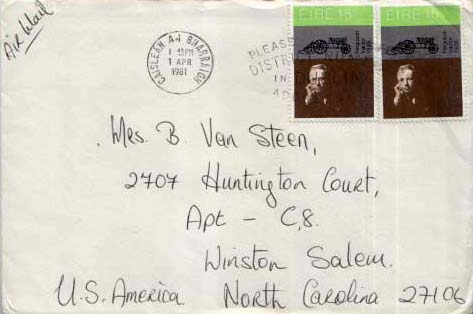 Air Mail
CAISLEAN AN BHARRAIGH
1 APR
1981
PLEASE
DISTR
IN
EIRE 15
EIRE
Mrs. B. Van Steen,
2707 Huntington Court,
Apt - C,8.
Winston Salem.
U.S. America North Carolina 27106